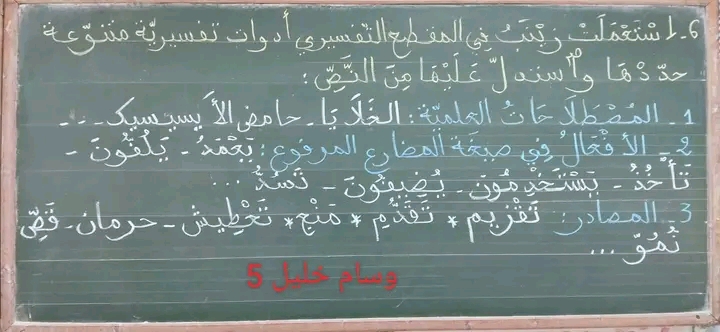 6 - اسْتَعْمَلَتْ زَيْنَبُ فِي المقطع التّفسيري أدوات تفسيريّة متنوّعة
حدّدْهَا واستدلّ عَلَيْهَا مِنَ النَّصِّ :
1 - المُصْطَلَحَاتُ العلميّة : الخَلَايَا - حامض الأَبْسِيسِيك - - -
2 - الأَفْعَالُ فِي صيغَة المضارع المرفوع : يَعْمَدُ - يَلُفُّونَ -
تَأْخُذُ - يَسْتَخْدِمُونَ - يُضِيفُونَ - تَسُدُّ ...
3 - المصادر : تَقْزِيم * تَقَدُّم * مَنْح * تَعْطِيش - حرمان - قَصِّ
نُمُوّ ...
وسام خليل 5